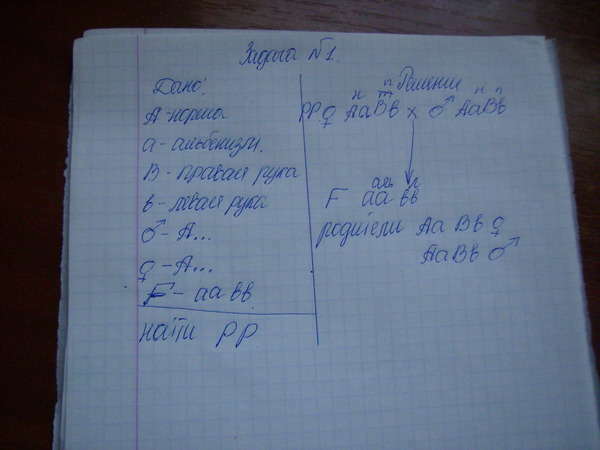 Задача №1.
Дано:
А - норма
а - альбенизм.
В - правая рука
в - левая рука
♂ - А...
♀ - А...
F - аа вв.
найти РР
Решение
н п н п
РР ♀ АаВв × ♂ АаВв
аль л
F аа вв
родители Аа Вв ♀
АаВв ♂